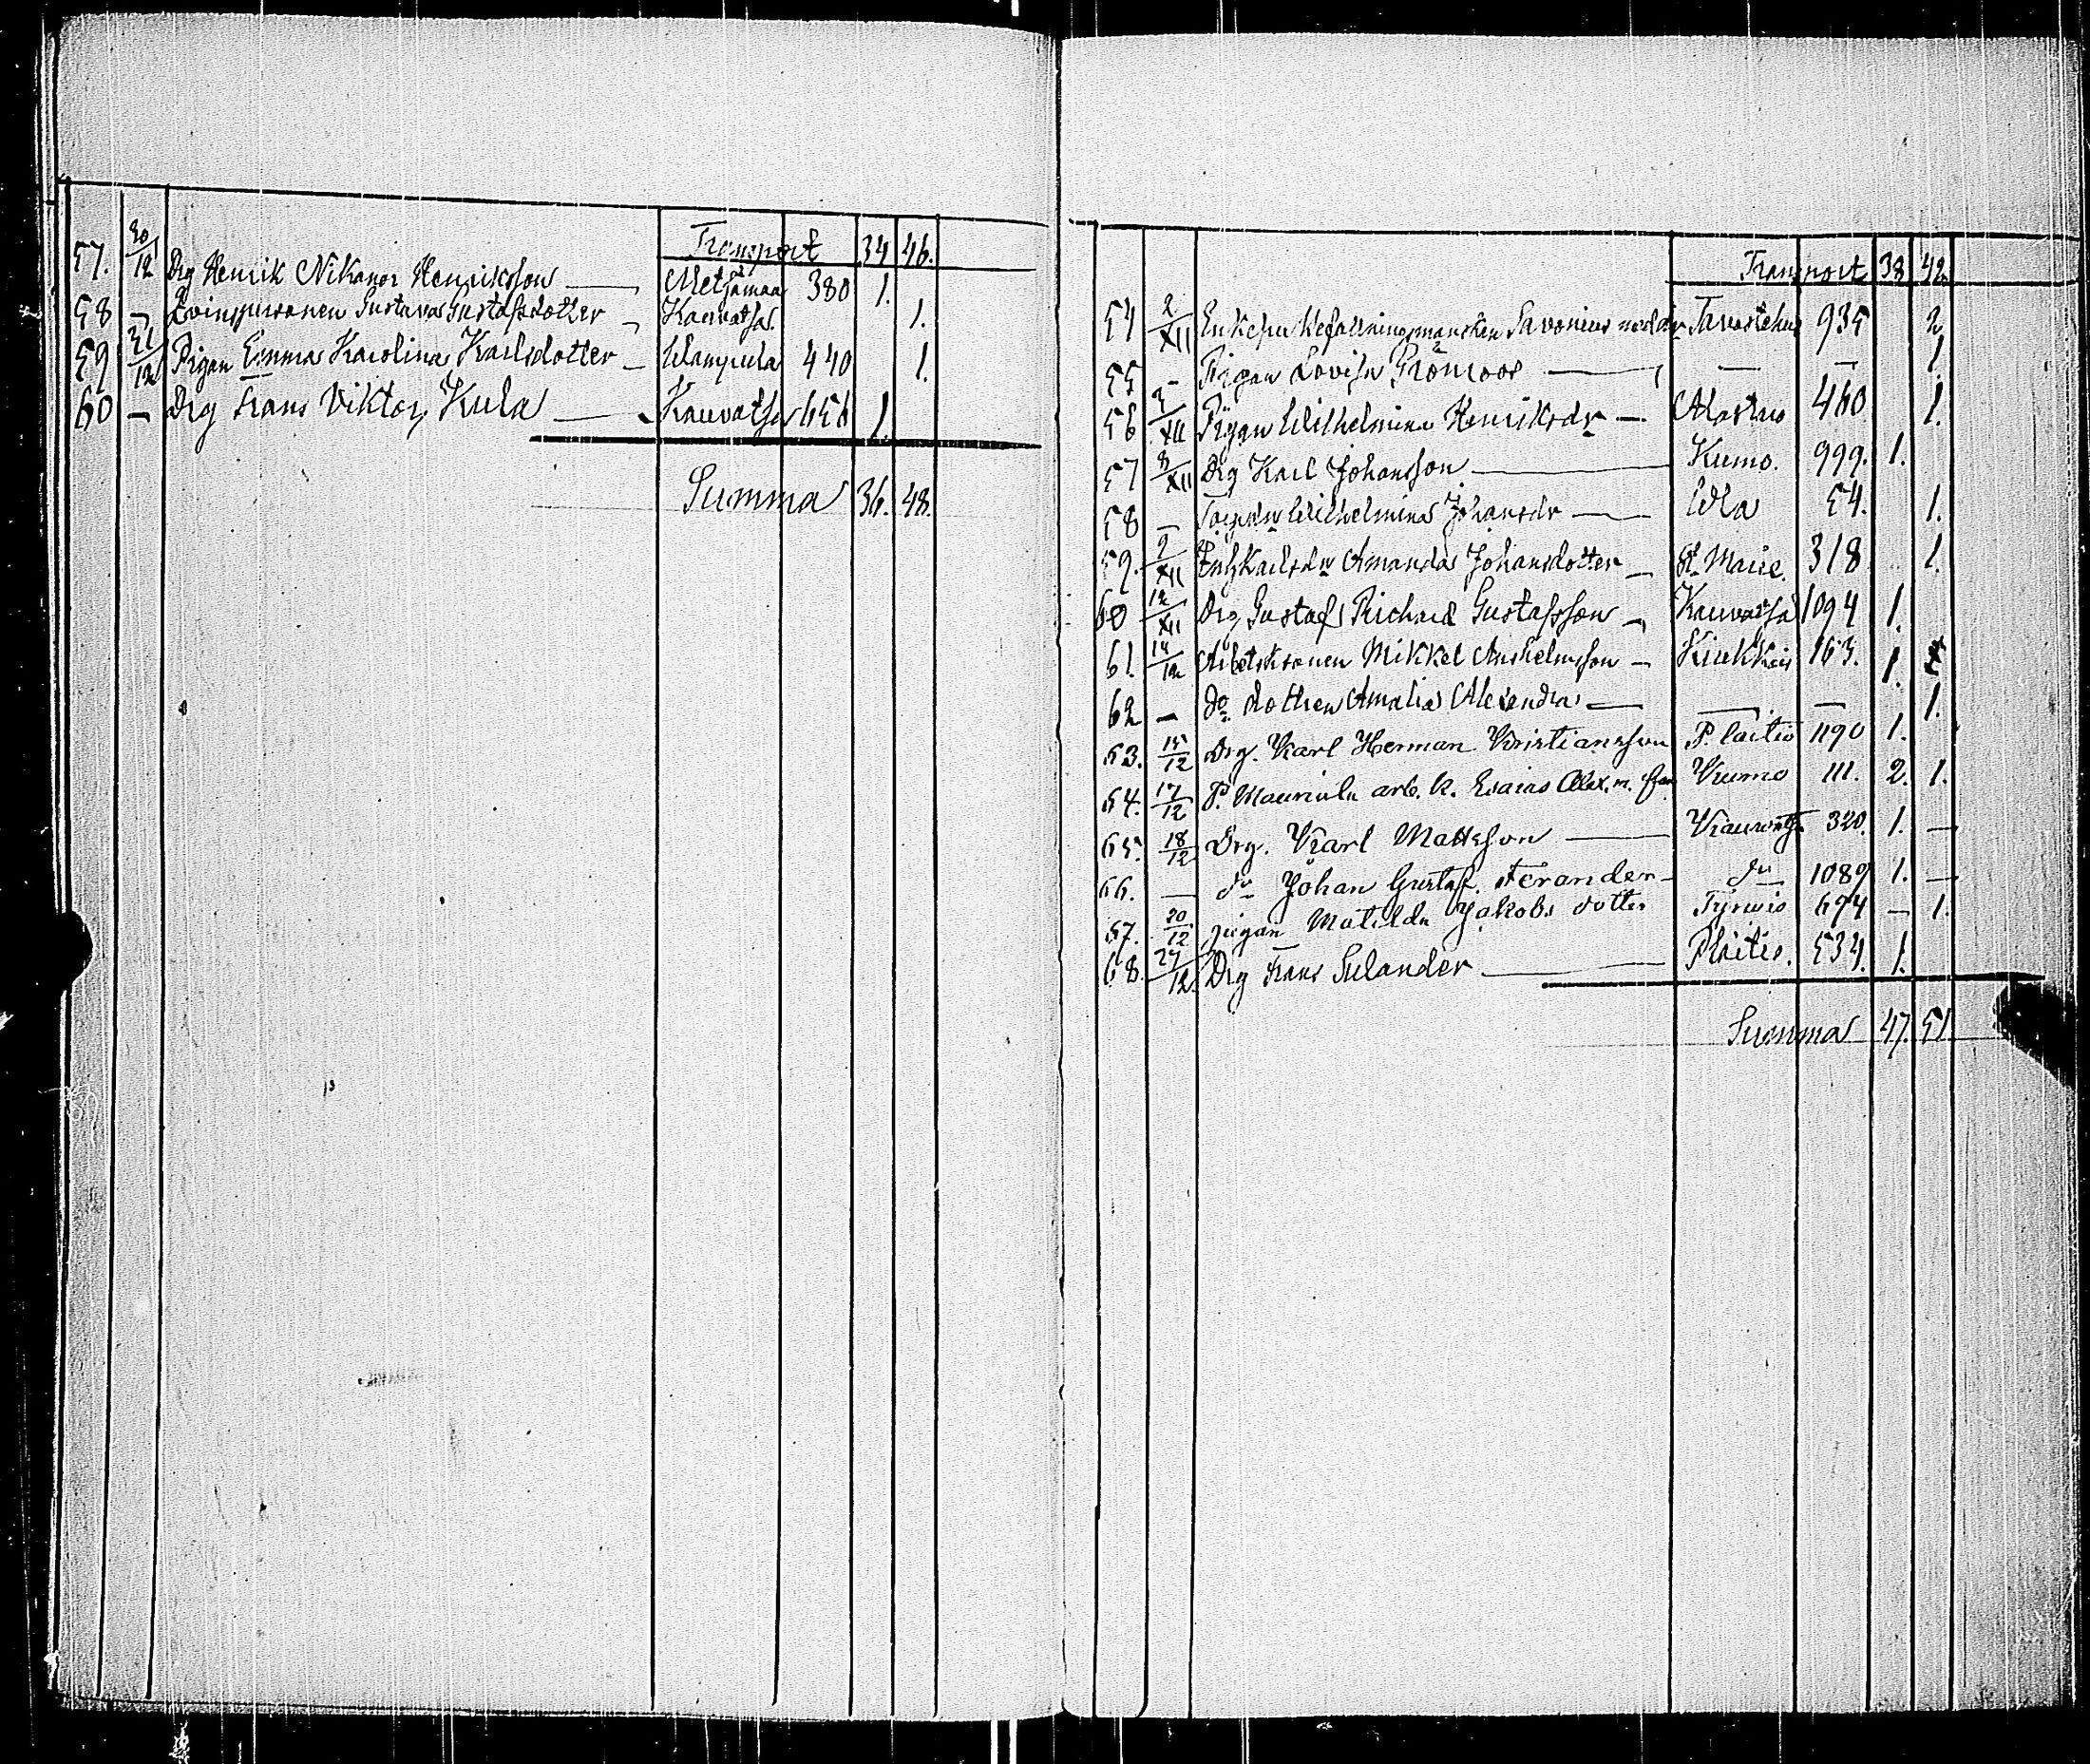 Transport 34 46.
57. 20/12 Drg Henrik Nikanor Henriksson — Metsämaa 380 1.
58 — Gustava Gustafsdotter — Kauvatsa 1.
59 21/12 Pigan Emma Karolina Karlsdotter — Wampula 440 1.
60 — Drg Frans Viktor Kula — Kauvatsa 656 1.
Summa 36. 48.
Transport 38 42.
54 2/XII Enkefru Befallningsmanskan Savonius med dr Tavastehus 935 2
55 — Pigan Lovisa Grönroos — — — 1.
56 3/XII Pigan Wilhelmina Henriksdr — Alastaro 460 1.
57 8/XII Drg Karl Johansson — Kumo. 999. 1.
58 — Wilhelmina Johansdr — Ula 54. 1.
59. 9/XII Amanda Johansdotter — St. Marie. 318 1.
60 12/XII Drg Gustaf Richard Gustafsson — Kauvatsa 1094 1.
61. 14/12 Arbetskarlen Mikkel Anshelmsson — Kiukkais 163. 1.
62 — do. dottren Amalia Alexandra — — — 1.
63. 15/12 Drg. Karl Herman Kristiansson P. laitio 1190 1.
64. 17/12 P. Mauriala arb. k. Esaias Alex. m. fam Kumo 111. 2. 1.
65. 18/12 Drg. Karl Mattsson — Kauvatsa 320. 1. —
66. — do Johan Gustaf Ferander — do 1089 1. —
67. 20/12 pigan Matilda Jakobs dotter Tyrvis 694 — 1.
68. 27/12 Drg Frans Sulander — Plaitio. 534. 1.
Summa 47. 51.